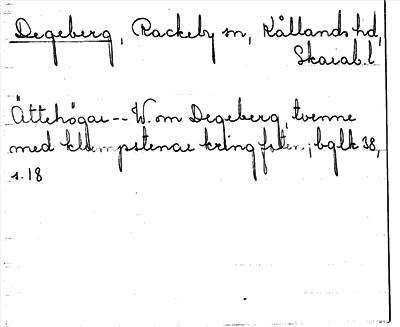 Degeberg, Rackeby sn, Kållands hd,
Skarab.l
Ättehögar -- W. om Degeberg, tvenne
med klumpstenar kring foten; bglk 38,
s. 18